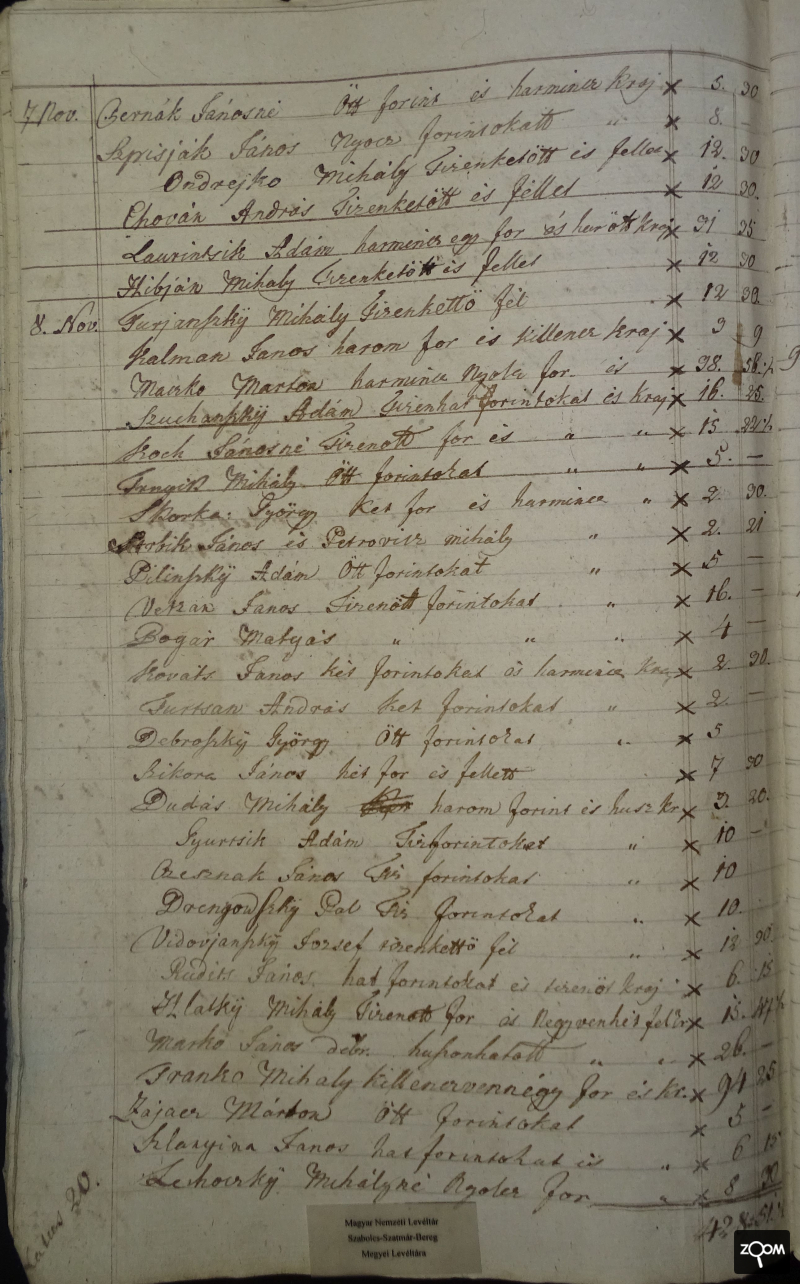 7 Nov. Bernák Jánosné Ött forint és harmincz Kraj x 5. 30
Sapisják János Nyocz forintokatt " x 8. —
Ondrejko Mihály Tizenketött és felles x 12. 30
Chován András Tizenketött és féllet x 12 30.
Laurintsik Adám harmincz egy for és harött kraj x 31 35
Hibján Mihaly Tizenketött és felles x 12 30
8. Nov. Turjanßkÿ Mihály Tizenkettö fél x 12 30.
Kalman Janos harom for és killencz kraj x 3 9
Maczko Marton harmincz Nyolcz for és x 38. 58.½
Szuchanßkÿ Adám Tizenhat forintokat és kraj x 16. 25.
Koch Jánosné Tizenött for és " " x 15 22½
Mihály Ött forintokat " " x 5. —
Skorka György Ket for és harmincz " x 2. 30.
János és Petrovicz mihály " x 2. 21
Pilinßkÿ Adám Ött forintokat " x 5 —
János Tizenött forintokat " x 16. —
Bogár Matyás " " " x 4 —
Kováts János két forintokat és harmincz kra x 2. 30.
Furtsan András ket forintokat " x 2 —
Debroßkÿ György Ött forintokat " x 5
Sikora János hét for és fellett x 7 30
Dudás Mihály harom forint és husz kr x 3. 20.
Gyurtsik Adám Tizforintokat " x 10 —
Czesznak János Tiz forintokat " x 10
Drengowßkÿ Pal Tiz forintokat " x 10.
Vidovjanßkÿ Jozsef tizenkettö fél " x 12 30.
Rudits János hat forintokat és tizenöt kraj x 6. 15
Hlatkÿ Mihály Tizenött for és Negyvenhét fel kr x 15. 47½
Markó János debr. hußonhatott " " x 26. —
Franko Mihaly Killenczvennégy for és kr. x 94 25
Zajacz Márton Ött forintokat x 5 —
Sztanyina Janos hat forintokat és " x 6 15
Lechoczkÿ Mihályné Nyolcz for " x 8 30
Latus 20.
Magyar Nemzeti Levéltár
Szabolcs-Szatmár-Bereg
Megyei Levéltára
ZOOM